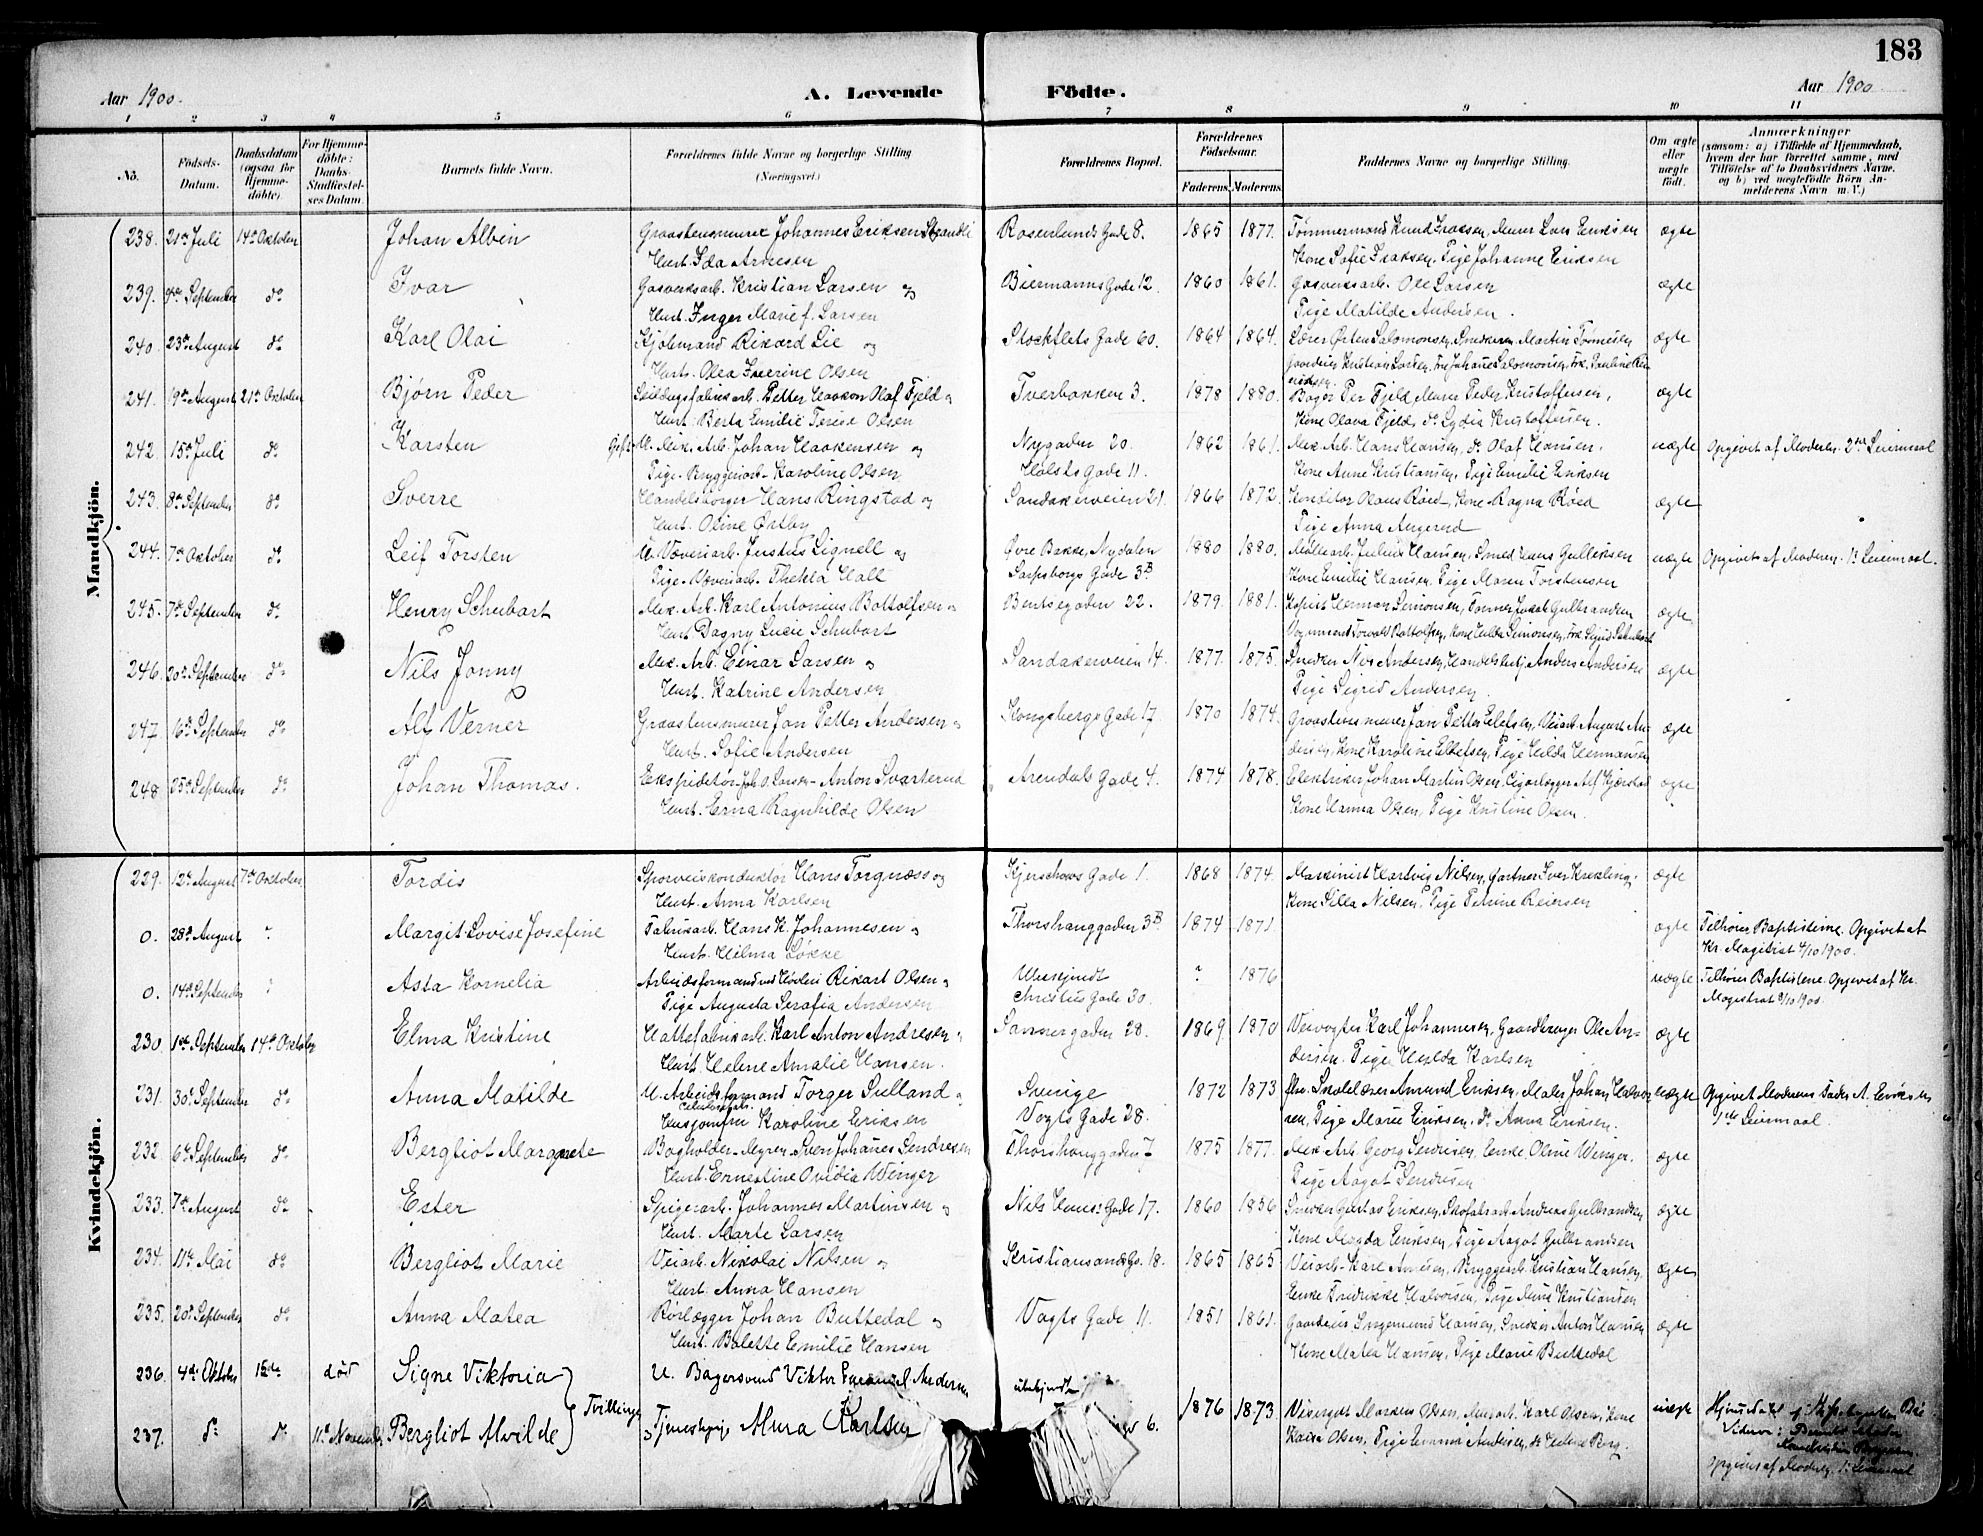 183
Aar 1900.
A. Levende Födte.
Aar 1900
1 2 3 4 5 6 7 8 9 10 11
No.
Födsels-Datum.
Daabsdatum (ogsaa for Hjemme-döbte).
For Hjemme-döbte: Daabs-Stadfæstelses Datum.
Barnets fulde Navn.
Forældrenes fulde Navne og borgerlige Stilling (Næringsvei.)
Forældrenes Bopæl.
Forældrenes Födselsaar.
Faderens. Moderens.
Faddernes Navne og borgerlige Stilling.
Om ægte eller uægte födt.
Anmærkninger
(saasom: a) i Tilfælde af Hjemmedaab, hvem der har forrettet samme, med Tilföielse af to Daabsvidners Navne, og b) ved uægtefödte Börn Anmelderens Navn m. V.)
Mandkjön.
238. 21de Juli 14de Oktober Johan Albin Graastensmurer Johannes Eriksen Strandli Rosenlunds Gade 8. 1865 1877. Tømmermand Knud Isaksen, Murer Lars Eriksen ægte
Hust. Ida Arnesen Kone Sofie Isaksen, Pige Johanne Eriksen
239. 9de September do Ivar Gasverksarb. Kristian Larsen og Biermanns Gade 12. 1860 1861. Gasverksarb. Ole Larsen ægte
Hust. Inger Marie f. Larsen Pige Matilde Andersen.
240. 23de August do Karl Olai Kjøbmand Rikard Lie og Stockflets Gade 60. 1864 1864. Lærer Østen Salomonsen, Snedker Martin Tønnesen ægte
Hust. Olea Severine Olsen
241. 19de August 21de Oktober Bjørn Peder Petter Haakon Olaf Fjeld og Tverbakken 3. 1878 1880. Bager Per Fjeld, Murer Peder Kristoffersen, ægte
Hust. Berta Emilie Terese Olsen Kone Olava Fjeld, do Lydia Kristoffersen.
242. 15de Juli do Karsten Gift U. Mek. Arb. Johan Haakensen og Nygaden 20. 1862 1861. Mek. Arb. Hans Hansen, do Olaf Hansen, uægte Opgivet af Moderen. 2det Leiermaal
Pige-Bryggeriarb. Karoline Olsen Holsts Gade 11. Kone Anne Kristiansen, Pige Emilie Eriksen
243. 8de September do Sverre Handelsborger Hans Ringstad og Sandakerveien 21. 1866 1872. Konditor Olaus Røed, Kone Ragna Røed ægte
Hust. Oline Østby Pige Anna Angerud
244. 7de Oktober do Leif Torsten U. Væveriarb. Justus Lignell og Øvre Bakke, Nydalen 1880 1880. Møllearb. Julius Hansen, Smed Hans Gulliksen uægte Opgivet af Moderen. 1st Leiermaal.
Pige-Væveriarb. Thekla Hall Sarpsborgs Gade 3B Kone Emilie Hansen, Pige Maren Torstensen
245. 7de September do Henry Schubart Mek. Arb. Karl Antonius Bottolfsen og Bentsegaden 22. 1879. 1881. Kopist Herman Simonsen, ægte
Hust. Dagny Lucie Schubart
246. 20de September do Nils Jonny Mek. Arb. Einar Larsen og Sandakerveien 14. 1877. 1875. Snedker Nils Andersen, Anders Andersen ægte
Hust. Katrine Andersen Pige Sigrid Andersen.
247. 16de September do Alf Verner Graastensmurer Jon Petter Andersen og Kongsbergs Gade 17. 1870 1874. Graastensmurer Jan Petter Ellefsen, Veiarb. August An- ægte
Hust. Sofie Andersen dersen, Kone Karoline Ellefsen, Pige Hilda Hermansen
248. 25de September do Johan Thomas. Ekspeditør Anton Svarterud Arendals Gade 4. 1874 1878. Elektriker Johan Martin Olsen, Alf Kjærstad ægte
Hust. Erna Ragnhilde Olsen Kone Hanna Olsen, Pige Kristine Olsen.
Kvindekjön.
229. 12te August 7de Oktober Tordis Sporveiskonduktør Hans Torgnæss og Kjerschows Gade 1. 1868 1874. Maskinist Hartvig Nilsen, Gartner Iver Krekling, ægte
Hust. Anna Karlsen Kone Silla Nilsen, Pige Petrine Reiersen
0. 28de August ? Margit Lovise Josefine Fabrikarb. Hans K. Johannesen og Thorshauggaden 3B 1874 1871. ægte Tilhører Baptisterne. Opgivet af
Hust. Hilma Løkke Kr. Magistrat 4/10 1900.
0. 14de September ? Asta Kornelia Arbeidsformand Rikart Olsen og Ubekjendt ? 1876 uægte Tilhører Baptisterne. Opgivet af Kr.
Pige Augusta Serafia Andersen Christies Gade 30. Magistrat 8/10 1900.
230. 1ste September 14de Oktober Elma Kristine Hattefabrikarb. Karl Anton Andresen og Sannergaden 28. 1869. 1870 Veivogter Karl Johannesen, Gaardbruger Ole An- ægte
Hust. Helene Amalie Hansen. dersen. Pige Hulda Karlsen
231. 30te September do Anna Matilde U. Arbeidsformand Torger Sulland og Sverige 1872 1873 Skolelærer Amund Eriksen, Maler Johan Halvor- uægte Opgivet Moderens Fader A. Eriksen
Husjomfru Karoline Eriksen Vogts Gade 28. sen, Pige Marie Eriksen, do Anna Eriksen. 1ste Leiermaal.
232 6te September do Bergliot Margrete Bogholder Myren Sven Johanes Sendresen Thorshauggaden 7 1875 1877. Mek. Arb. Georg Sendresen, Enke Oline Winger. ægte
Hust. Ernestine Ovidia Winger Pige Aagot Sendresen
233. 7de August do Ester Spigerarb. Johannes Martinsen og Nils Huus: Gade 17. 1860 1856 Snedker Gustav Eriksen, Skofabrarb. Andreas Gulbrandsen ægte
Hust. Marte Larsen Kone Magda Eriksen, Pige Aagot Gulbrandsen
234. 11te Mai do Bergliot Marie Veiarb. Nikolai Nilsen og Kristiansands G. 18. 1865 1865 Veiarb. Karl Amesen, Bryggeriarb. Kristian Hansen, ægte
Hust. Anna Hansen Enke Fredrikke Halvorsen, Pige Anne Kristiansen
235. 20de September do Anna Matea Rørlægger Johan Buttedal og Vogts Gade 11. 1851 1861. Gaardeier Ingemund Hansen, Snedker Anton Hansen ægte
Hust. Bolette Emilie Hansen Kone Matea Hansen, Pige Marie Buttedal
236. 4de Oktober 15de død Signe Viktoria } Tvillinger U. Bagersvend Viktor Emanuel Andersen ubekjendt
237. do do 11te November Bergliot Alvilde og Tjenestepige Anna Karlsen 6. 1876 1873. Markus Olsen, Karl Olsen, Kone uægte
Kaisa Olsen, Pige Emma Andersen, do Helene Berg.
Opgivet af Moderen. 1st Leiermaal